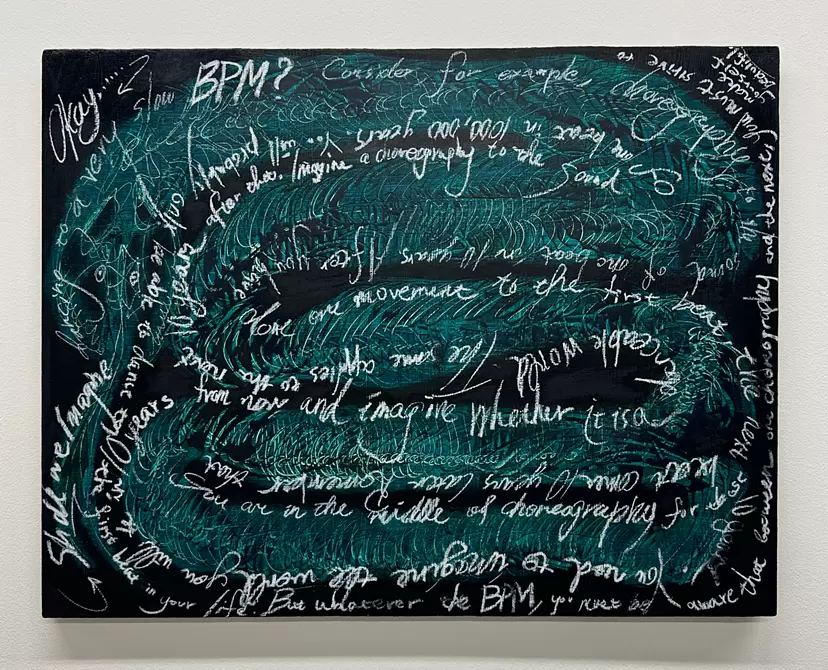 Okay.....
Shall we imagine
dancing to a very slow BPM? Consider for example, choreographing to the
sound of one beat in 10 years. After you have
done one movement to the first beat, the next
beat comes 10 years later. Remember that
you are in the middle of choreography for those 10 years.
You need to imagine the world you will
10 years
from now and imagine whether it is a
peaceable world. The same applies to the next
10 years after that. Imagine a choreography to the sound
of one beat in 1000,000 years. You will probably only
be able to dance to
in your life. But whatever the BPM, you must be
aware that between one choreography and the next,
you must strive to
make
yourself
beautiful